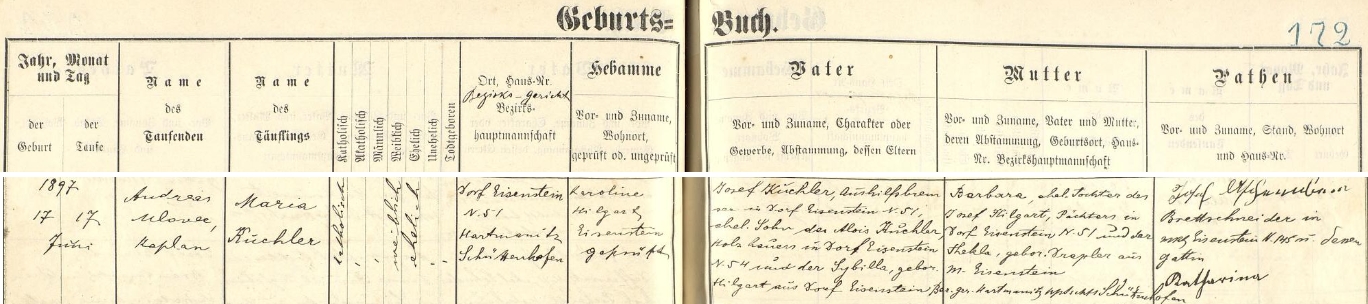 Geburts=Buch.
172
Jahr, Monat und Tag
der Geburt
der Taufe
Name
des
Taufenden
Name
des
Täuflings
Katholisch
Akatholisch
Männlich
Weiblich
Ehelich
Unehelich
Todtgeboren
Ort, Haus-Nr.
Bezirks-gericht
Bezirks-
hauptmannschaft
Hebamme
Vor- und Zuname,
Wohnort,
geprüft od. ungeprüft
Vater
Vor- und Zuname, Charakter oder
Gewerbe, Abstammung, dessen Eltern
Mutter
Vor- und Zuname, Vater und Mutter,
deren Abstammung, Geburtsort, Haus-
Nr. Bezirkshauptmannschaft
Pathen
Vor- und Zuname, Stand, Wohnort
und Haus-Nr.
1897
17 17
Juni
Andreas
Ulovec,
Kaplan
Maria
Küchler
katholisch
weiblich
ehelich
Dorf Eisenstein
N. 51
Hartmanitz
Schüttenhofen
Karoline
Hilgart
Eisenstein
geprüft
Josef Küchler, Aushilfsbrem
ser in Dorf Eisenstein N. 51,
ehel. Sohn des Alois Küchler,
Holzhauers in Dorf Eisenstein
N. 54 und der Sybilla, gebor.
Hilgart aus Dorf Eisenstein
Barbara, ehel. Tochter des
Josef Hilgart, Pächters in
Dorf Eisenstein N. 51 und der
Thekla, gebor. Draxler aus
M. Eisenstein
Bez. ger. Hartmanitz Schüttenhofen
Josef
Brettschneider in
Markt Eisenstein N. 145 u. dessen
Gattin
Katharina